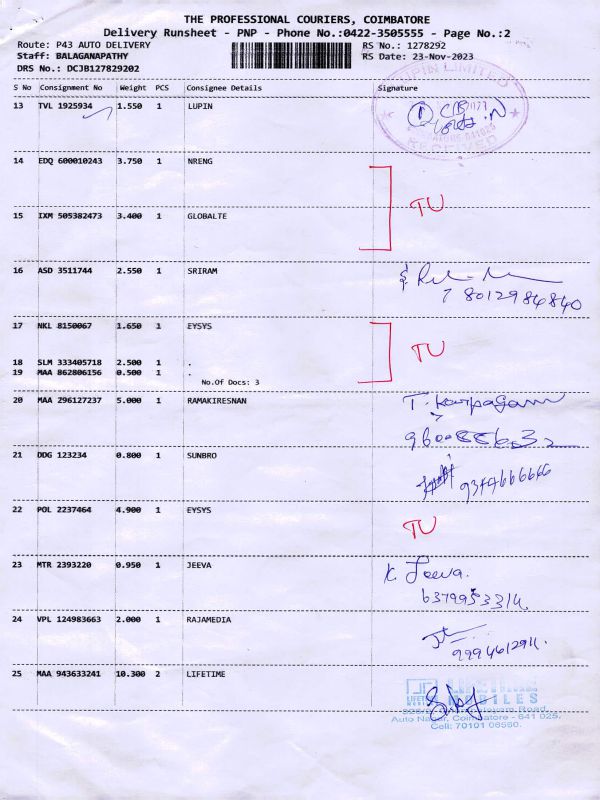 THE PROFESSIONAL COURIERS, COIMBATORE
Delivery Runsheet - PNP - Phone No.:0422-3505555 - Page No.:2
Route: P43 AUTO DELIVERY RS No.: 1278292
Staff: BALAGANAPATHY RS Date: 23-Nov-2023
DRS No.: DCJB127829202
S No Consignment No Weight PCS Consignee Details Signature
13 TVL 1925934 1.550 1 LUPIN
LUPIN LIMITED
RECEIVED
14 EDQ 600010243 3.750 1 NRENG
TU
15 IXM 505382473 3.400 1 GLOBALTE
16 ASD 3511744 2.550 1 SRIRAM
8012984840
17 NKL 8150067 1.650 1 EYSYS
TU
18 SLM 333405718 2.500 1 .
19 MAA 862806156 0.500 1 .
No.Of Docs: 3
20 MAA 296127237 5.000 1 RAMAKIRESNAN
T. Karpagam
21 DDG 123234 0.800 1 SUNBRO
22 POL 2237464 4.900 1 EYSYS
TU
23 MTR 2393220 0.950 1 JEEVA
K. Jeeva.
24 VPL 124983663 2.000 1 RAJAMEDIA
25 MAA 943633241 10.300 2 LIFETIME
LIFETIME
MOBILES
Road,
Auto Nagar, Coimbatore - 641 025.
Cell: 70101 06560.